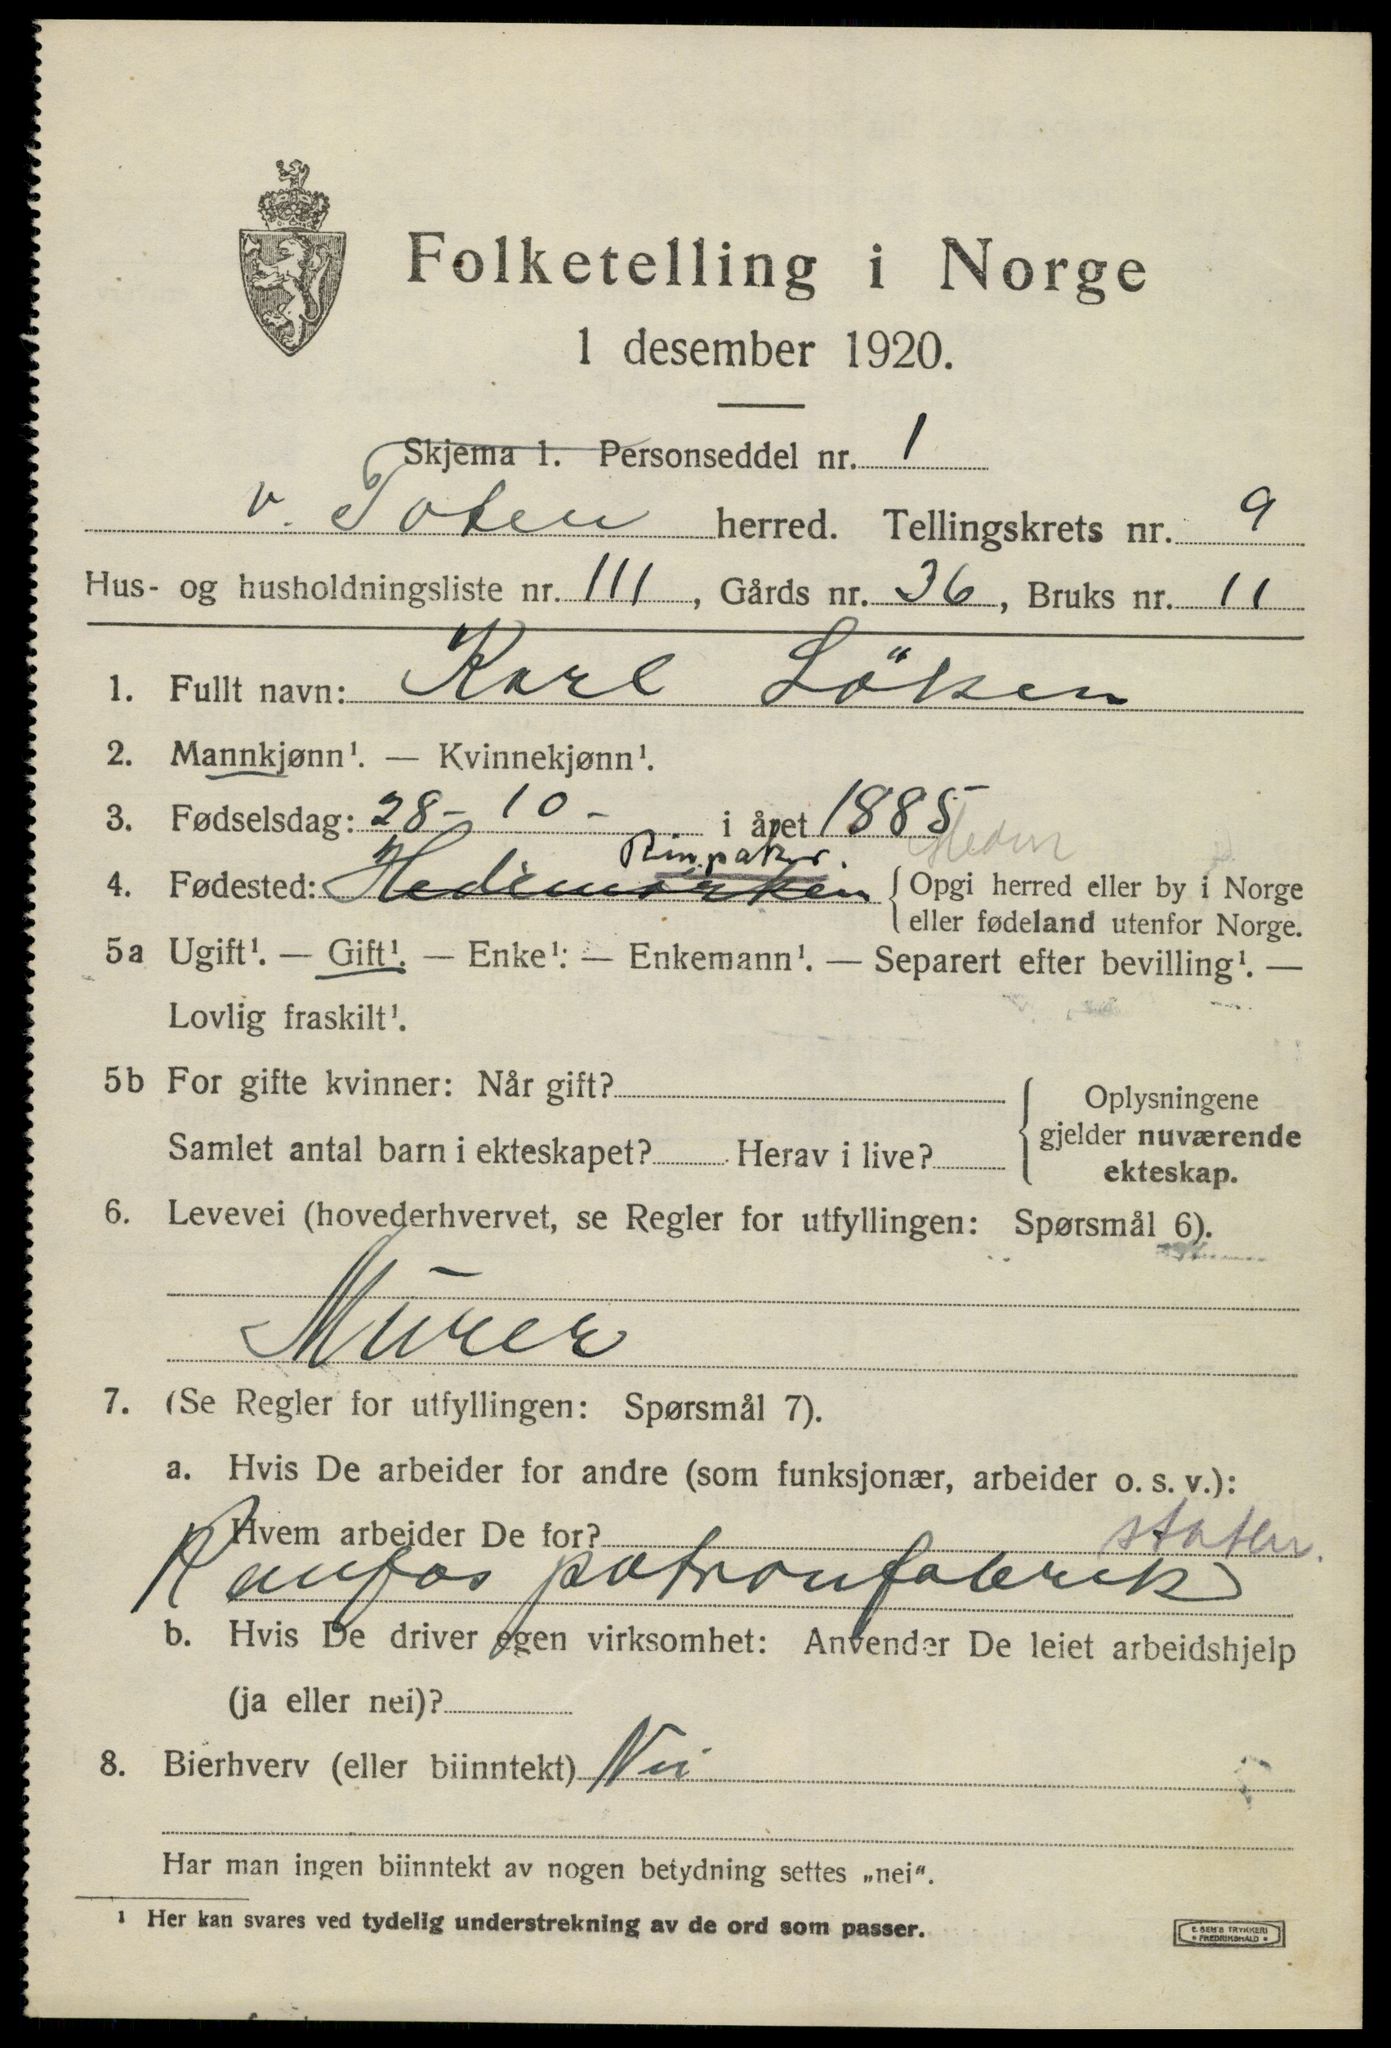 Folketelling i Norge
1 desember 1920.
Skjema 1. Personseddel nr. 1
v. Toten herred. Tellingskrets nr. 9
Hus- og husholdningsliste nr. 111, Gårds nr. 36, Bruks nr. 11
1. Fullt navn: Karl Löken
2. Mannkjønn¹. — Kvinnekjønn¹.
3. Fødselsdag: 28 - 10 - i året 1885
Ringsaker. Hedm
4. Fødested: Hedemarken { Opgi herred eller by i Norge
eller fødeland utenfor Norge.
5a Ugift¹. — Gift¹. — Enke¹: — Enkemann¹. — Separert efter bevilling¹. —
Lovlig fraskilt¹.
5b For gifte kvinner: Når gift?
Samlet antal barn i ekteskapet? Herav i live?
Oplysningene
gjelder nuværende
ekteskap.
6. Levevei (hovederhvervet, se Regler for utfyllingen: Spørsmål 6).
Murer
7. (Se Regler for utfyllingen: Spørsmål 7).
a. Hvis De arbeider for andre (som funksjonær, arbeider o. s. v.):
Hvem arbeider De for? staten.
Raufos patronfabrik
b. Hvis De driver egen virksomhet: Anvender De leiet arbeidshjelp
(ja eller nei)?
8. Bierhverv (eller biinntekt) Nei
Har man ingen biinntekt av nogen betydning settes „nei“.
¹ Her kan svares ved tydelig understrekning av de ord som passer.
E. SEM'S TRYKKERI
* FREDRIKSHALD *